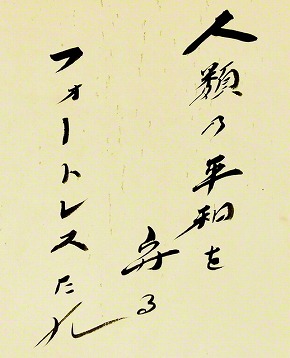 人類の平和を
守る
フォートレスたれ